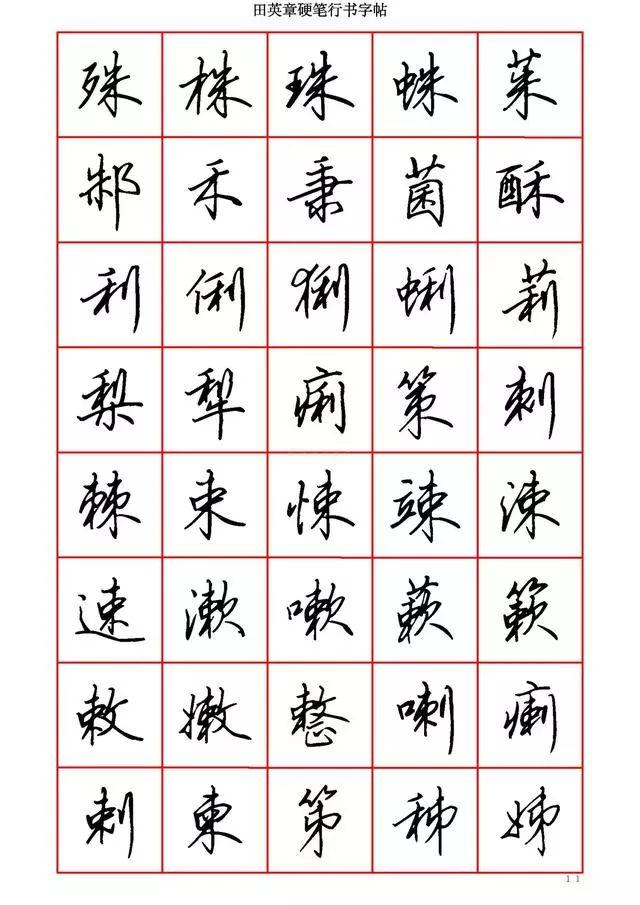 田英章硬笔行书字帖
殊株珠蛛茱
邾禾秉菌酥
利俐猁蜊莉
梨犁痢策刺
棘束悚竦涑
速漱嗽蔌簌
敕嫩整喇瘌
剌柬第秭姊
11